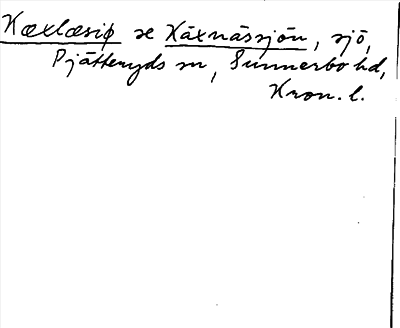 Kæxlæsiø se Käxnässjön, sjö,
Pjätteryds sn, Sunnerbo hd,
Kron. l.